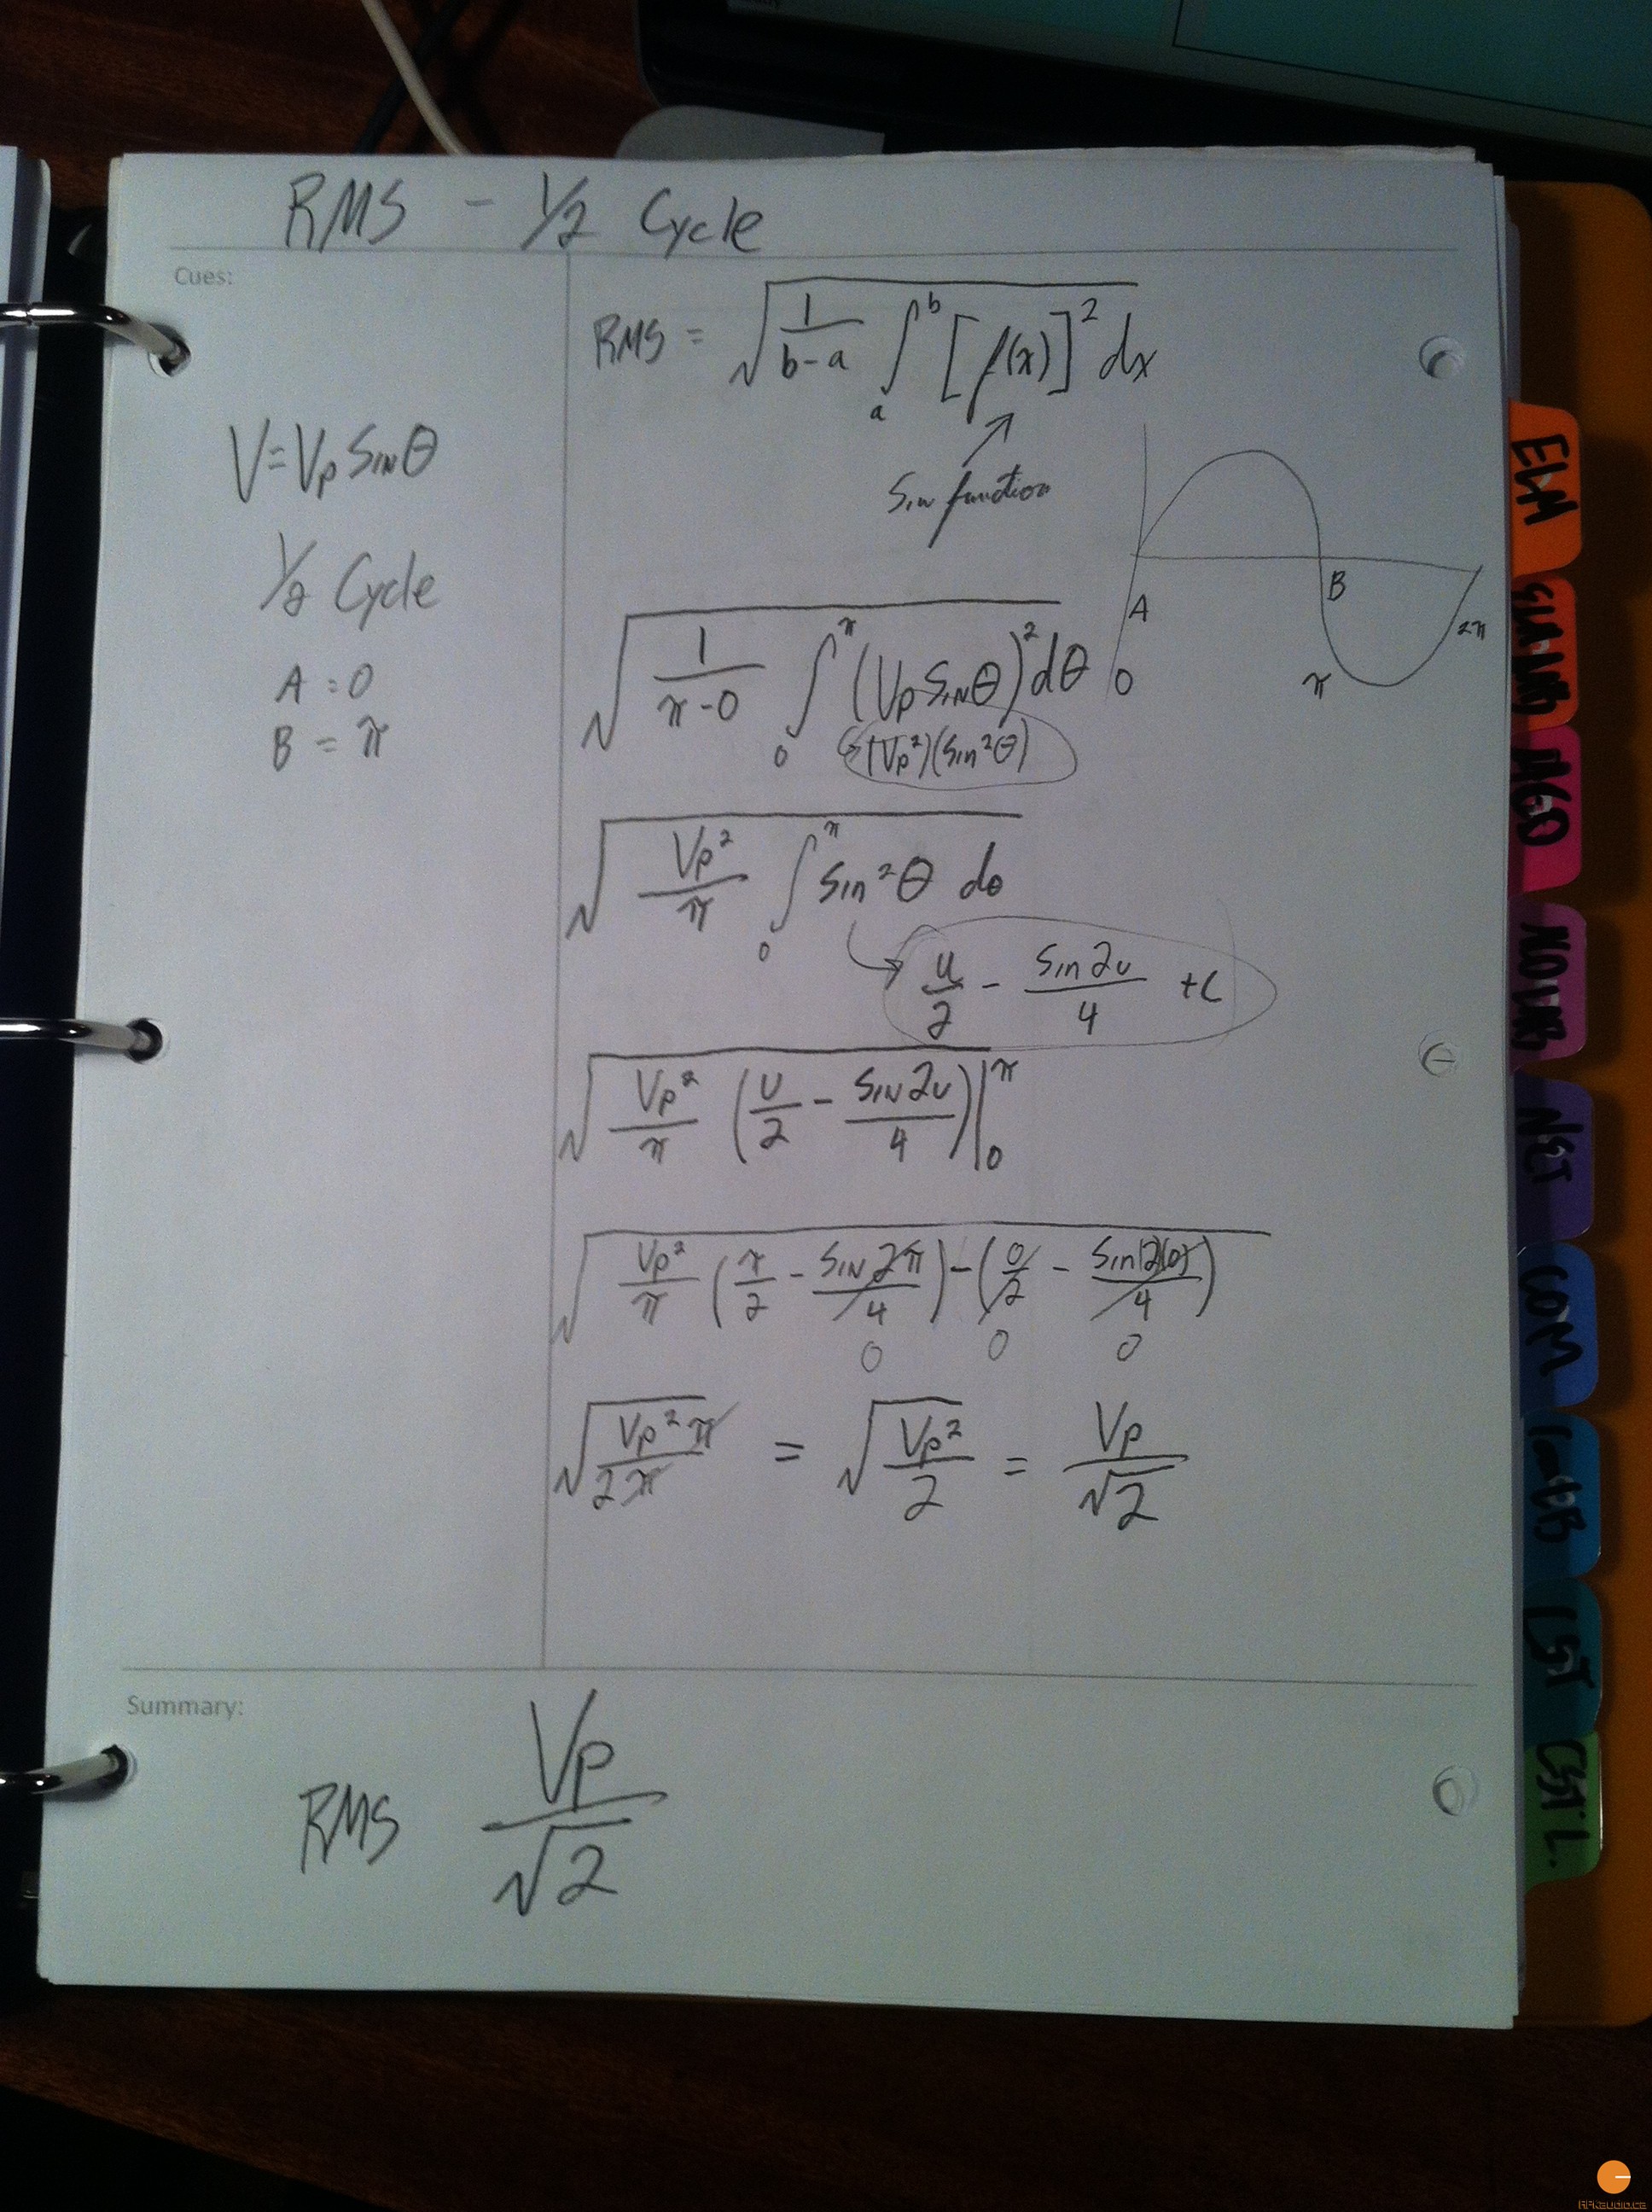 RMS - 1/2 Cycle
Cues:
V = Vp SIN θ
1/2 Cycle
A = 0
B = π
RMS = √( 1/(b-a) ∫_a^b [f(x)]² dx )
Sin function
A
B
0
π
2π
√( 1/(π-0) ∫_0^π (Vp SIN θ)² dθ )
(Vp²)(Sin²θ)
√( Vp²/π ∫_0^π Sin²θ dθ )
u/2 - Sin2u/4 + C
√( Vp²/π (u/2 - SIN2u/4) |_0^π )
√( Vp²/π (π/2 - SIN2π/4) - (0/2 - Sin(2(0))/4) )
0 0 0
√( Vp²π / 2π ) = √( Vp²/2 ) = Vp/√2
Summary:
RMS Vp/√2
ELM
NET
COM
LST
CST'L.